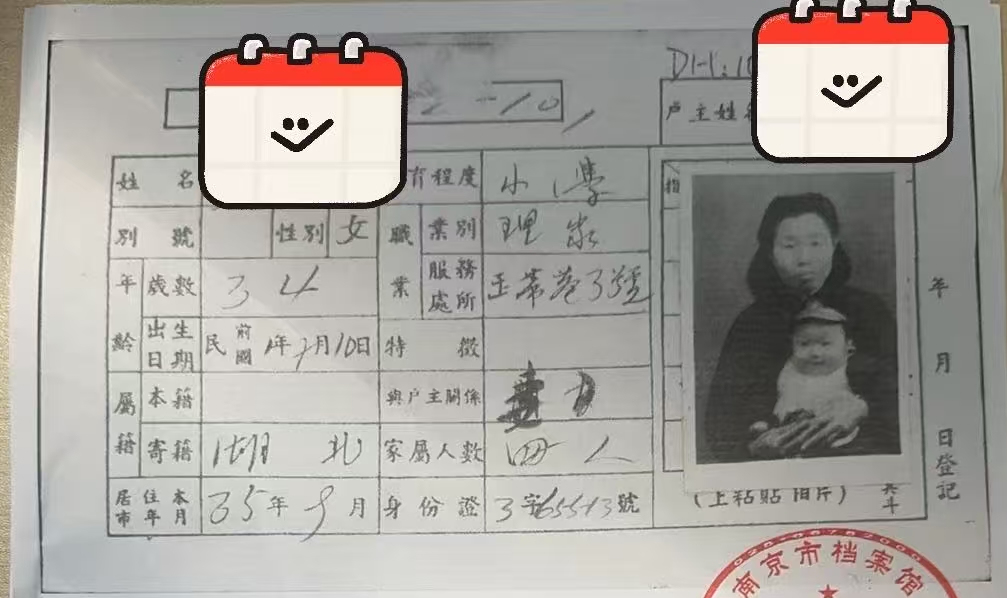 DH:1
2-10
户主姓
姓名
育程度 小學
別號
性別 女
職業
業別 理家
年齡
歲數 34
服務處所 3號
出生日期 民前國1年7月10日
特徵
屬籍
本籍
與戶主關係
寄籍 湖北
家屬人數 四人
居住本市年月 35年9月
身份證 3字65513號
指
(上粘貼相片)
箕斗
年月日登記
南京市档案馆